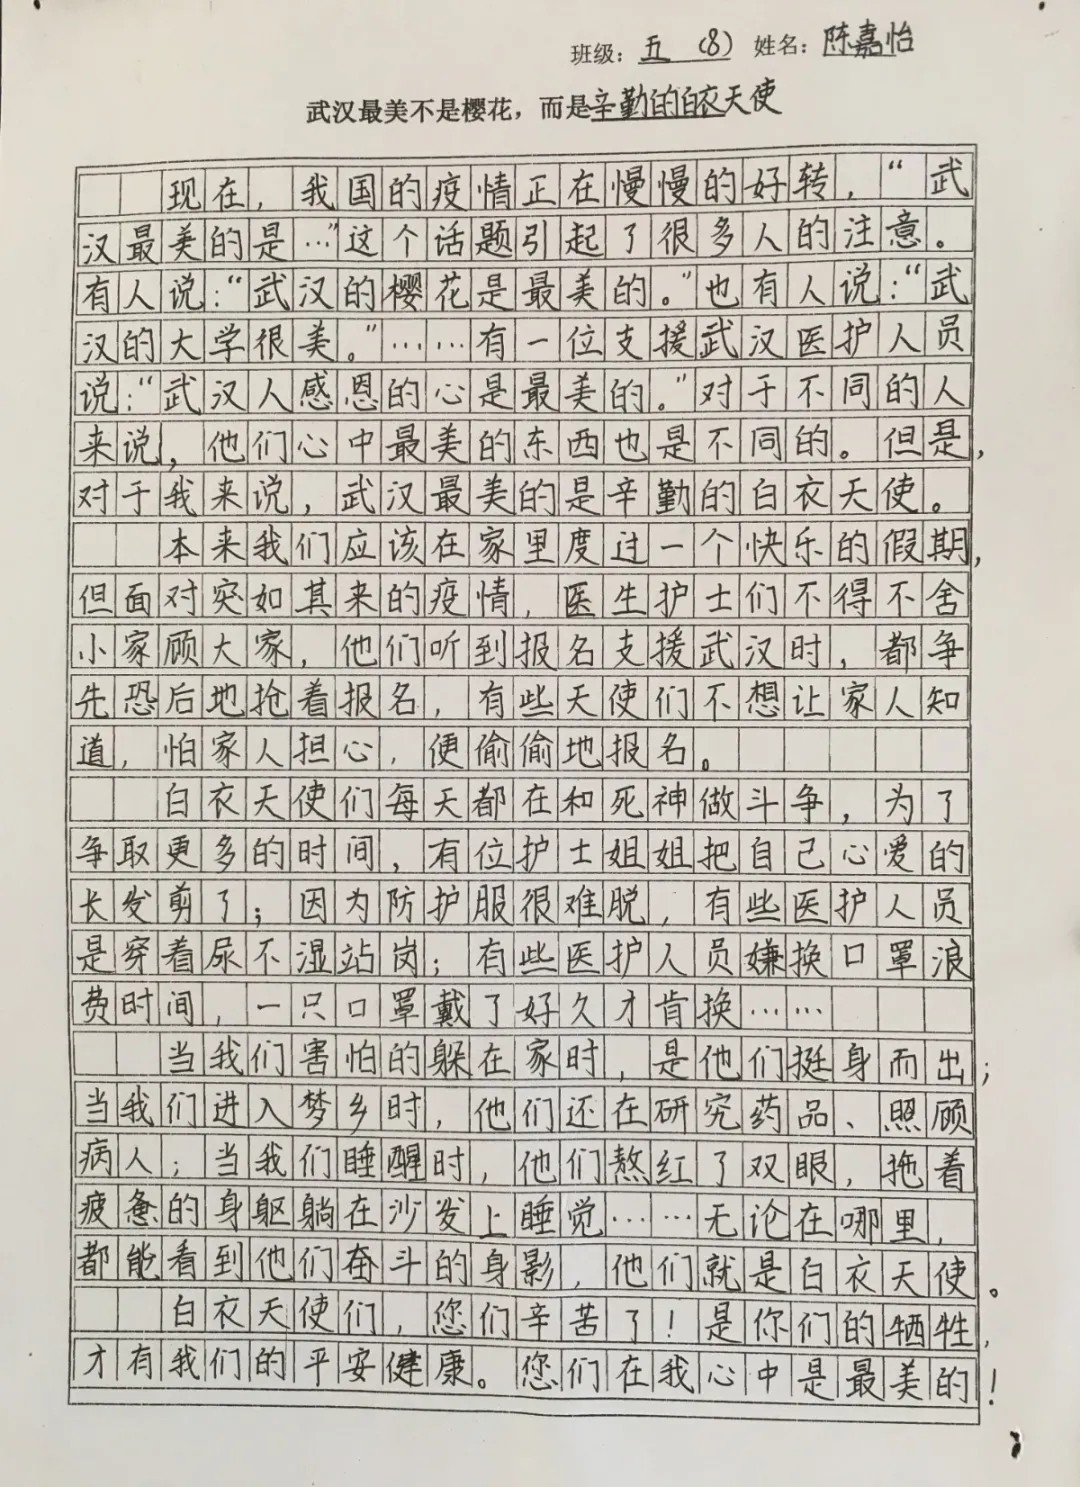 班级：五（8） 姓名：陈嘉怡
武汉最美不是樱花，而是辛勤的白衣天使
现在，我国的疫情正在慢慢的好转，“武
汉最美的是…”这个话题引起了很多人的注意。
有人说：“武汉的樱花是最美的。”也有人说：“武
汉的大学很美。”……有一位支援武汉医护人员
说：“武汉人感恩的心是最美的。”对于不同的人
来说，他们心中最美的东西也是不同的。但是，
对于我来说，武汉最美的是辛勤的白衣天使。
本来我们应该在家里度过一个快乐的假期，
但面对突如其来的疫情，医生护士们不得不舍
小家顾大家，他们听到报名支援武汉时，都争
先恐后地抢着报名，有些天使们不想让家人知
道，怕家人担心，便偷偷地报名。
白衣天使们每天都在和死神做斗争，为了
争取更多的时间，有位护士姐姐把自己心爱的
长发剪了；因为防护服很难脱，有些医护人员
是穿着尿不湿站岗；有些医护人员嫌换口罩浪
费时间，一只口罩戴了好久才肯换……
当我们害怕的躲在家时，是他们挺身而出；
当我们进入梦乡时，他们还在研究药品、照顾
病人；当我们睡醒时，他们熬红了双眼，拖着
疲惫的身躯躺在沙发上睡觉……无论在哪里，
都能看到他们奋斗的身影，他们就是白衣天使。
白衣天使们，您们辛苦了！是你们的牺牲，
才有我们的平安健康。您们在我心中是最美的！